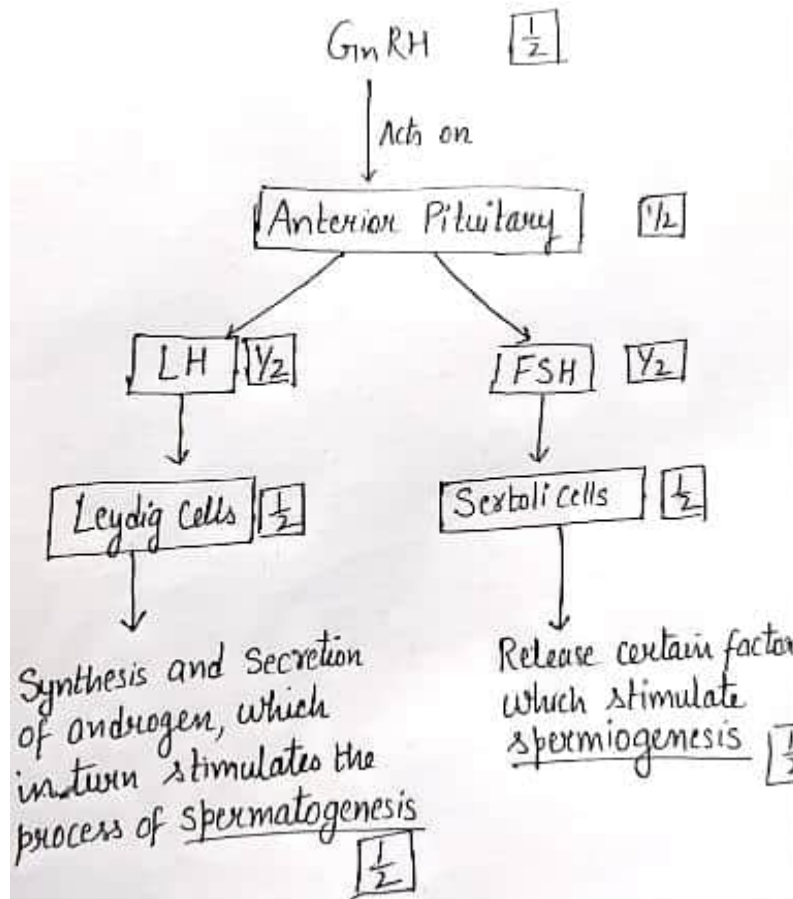 GnRH 1/2
Acts on
Anterior Pituitary 1/2
LH 1/2
FSH 1/2
Leydig Cells 1/2
Sertoli cells 1/2
Synthesis and Secretion
of androgen, which
in turn stimulates the
process of spermatogenesis
1/2
Release certain factor
which stimulate
spermiogenesis 1/2